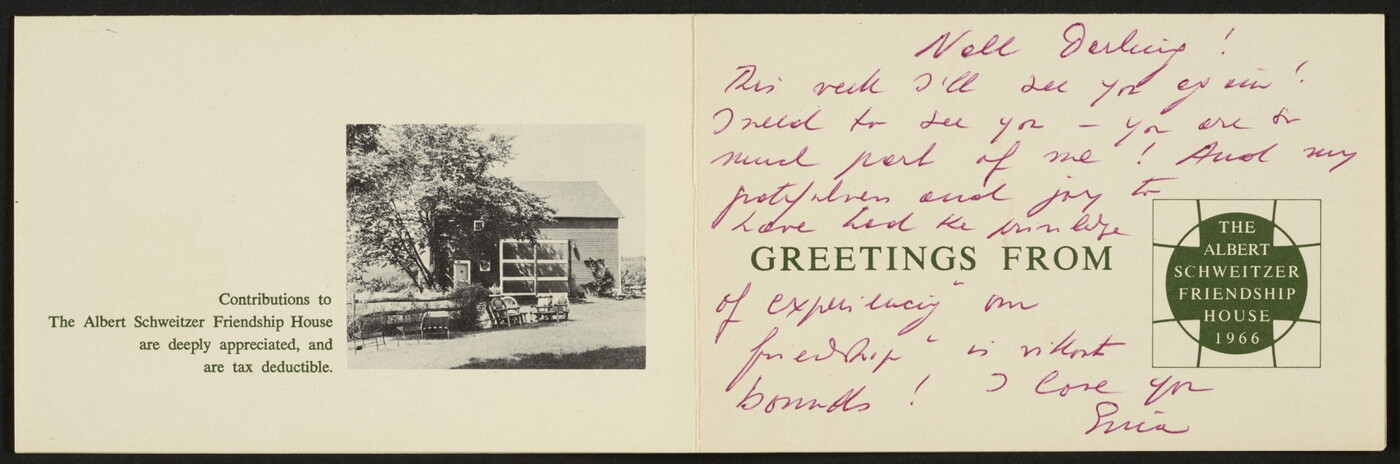 Contributions to
The Albert Schweitzer Friendship House
are deeply appreciated, and
are tax deductible.
Nell Darling!
This week I'll see you again!
I need to see you – you are so
much part of me! And my
gratefulness and joy to
have had the privilege
GREETINGS FROM
of experiencing" our
friendship" is without
bounds! I love you
Erica
THE
ALBERT
SCHWEITZER
FRIENDSHIP
HOUSE
1966